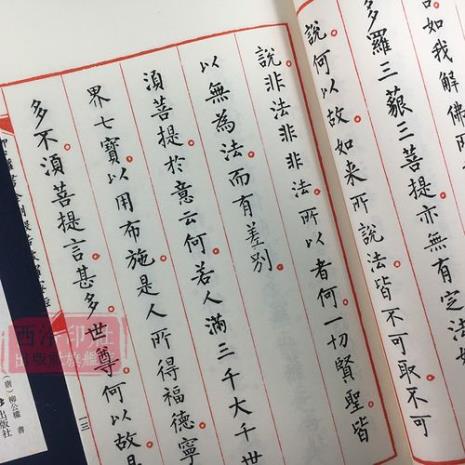 如我解佛所
多羅三藐三菩提亦無有定法如
說何以故如来所說法皆不可取不可
說非法非非法所以者何一切賢聖皆
以無為法而有差别
湏菩提於意云何若人滿三千大千世
界七寶以用布施是人所得福德寧
多不湏菩提言甚多世尊何以故是
一三
(唐)柳公權 書
出版社
西泠印社
出版社旗艦